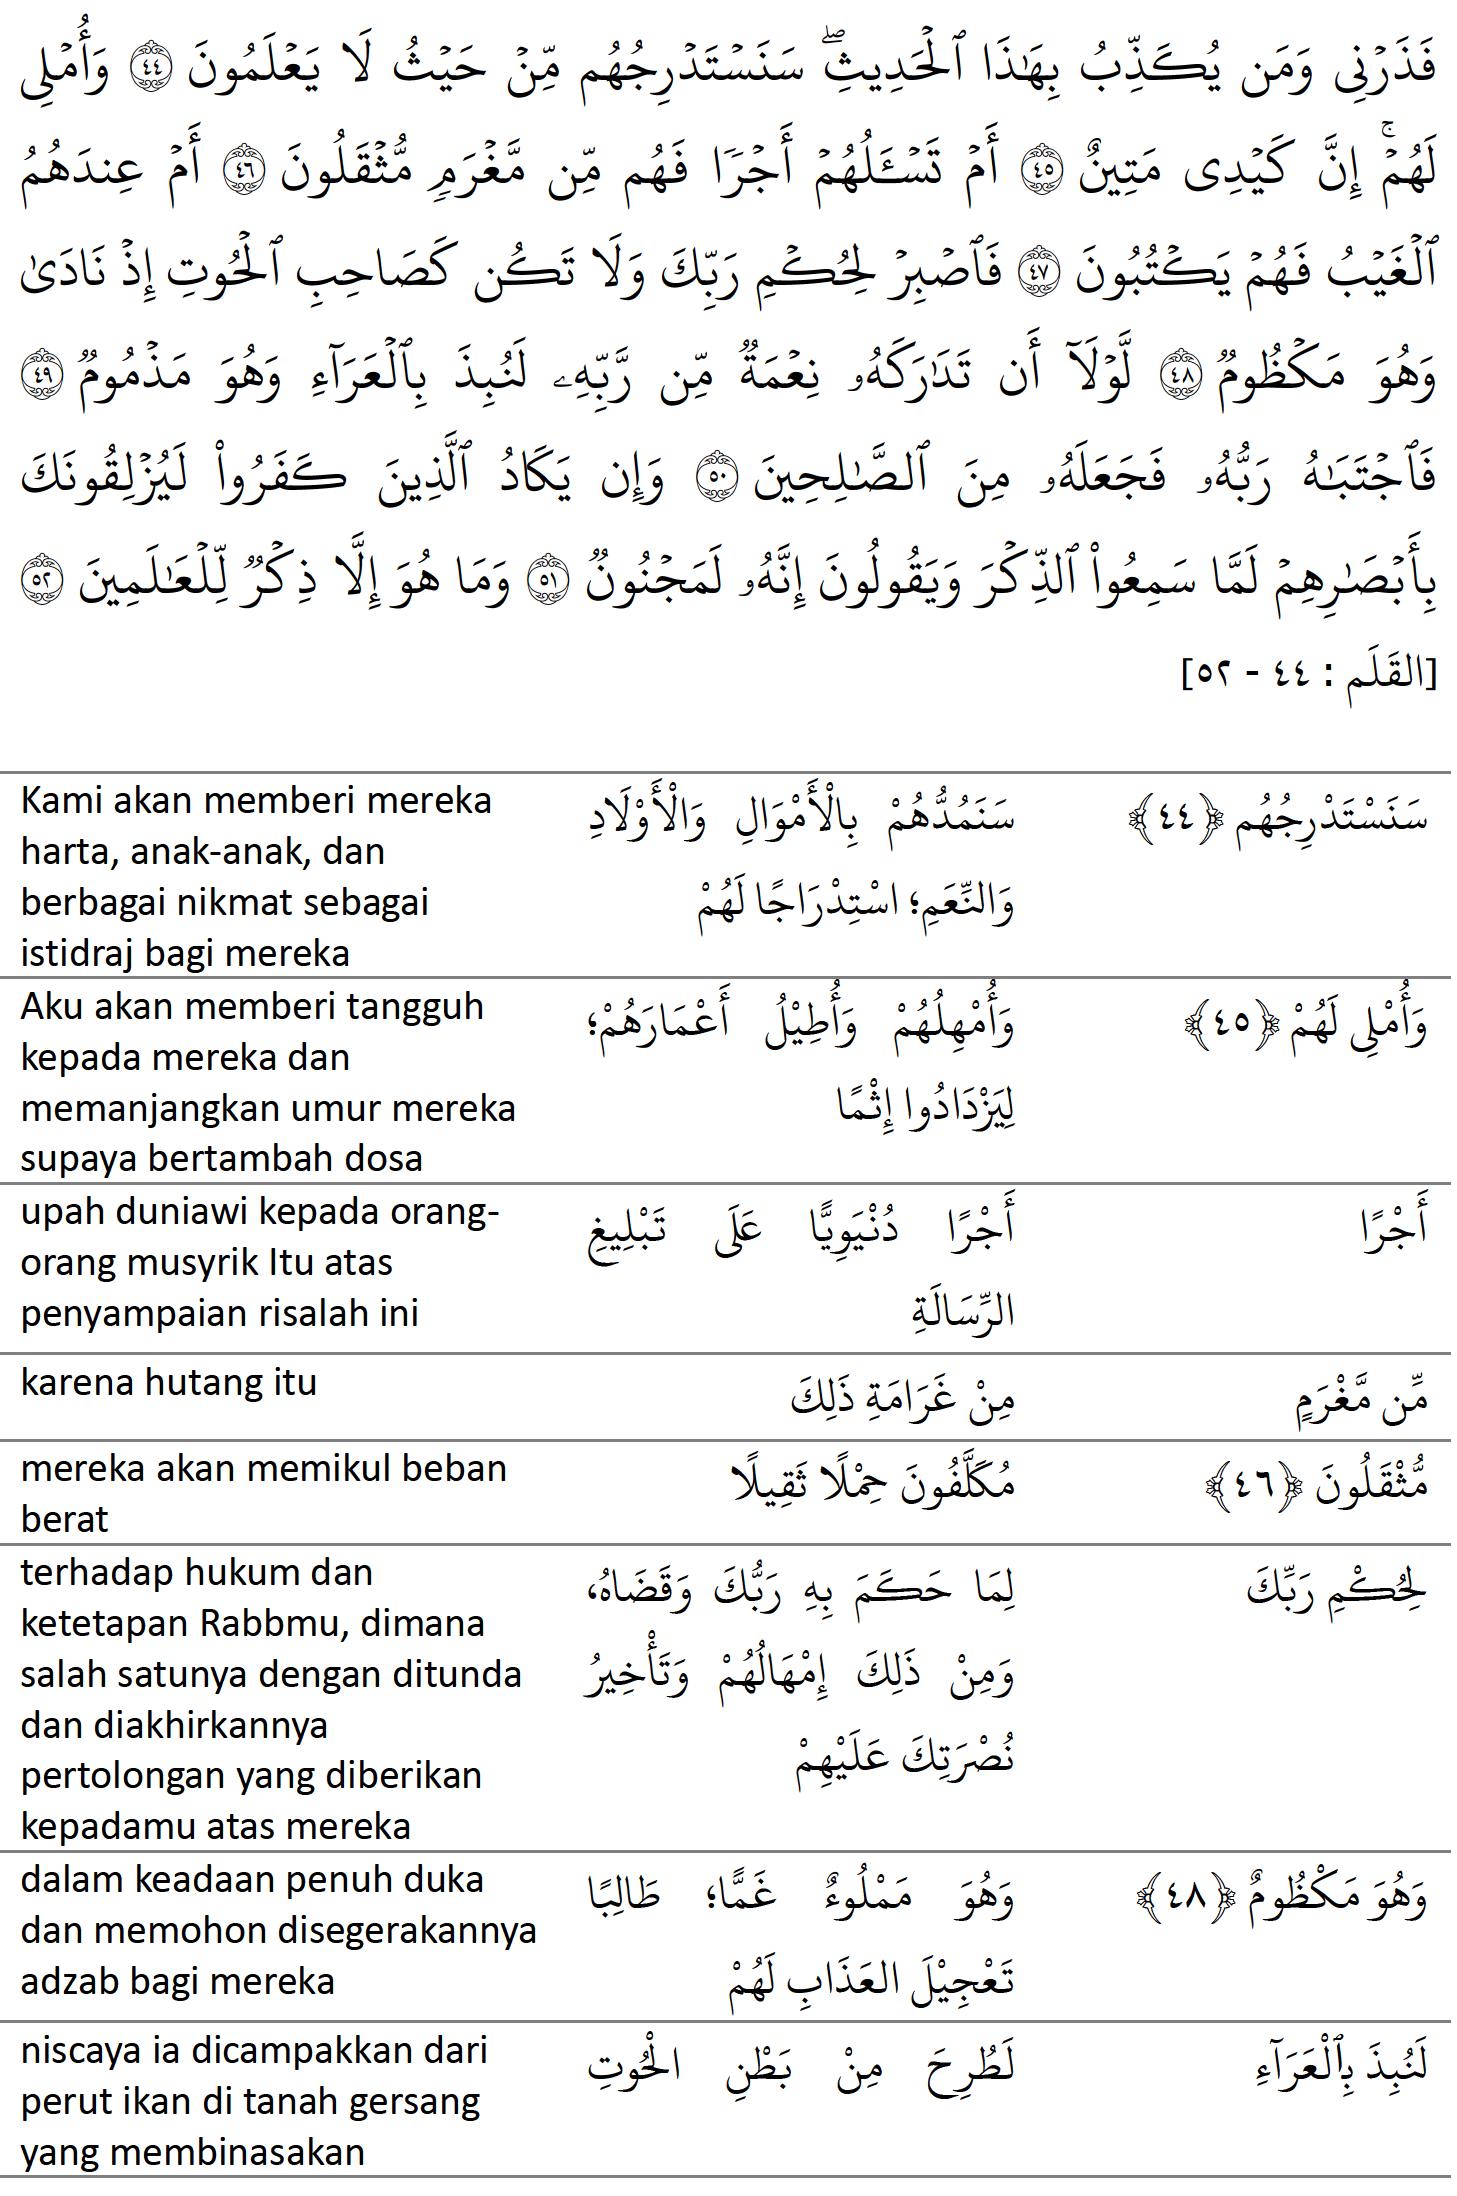 فَذَرۡنِي وَمَن يُكَذِّبُ بِهَٰذَا ٱلۡحَدِيثِۖ سَنَسۡتَدۡرِجُهُم مِّنۡ حَيۡثُ لَا يَعۡلَمُونَ ٤٤ وَأُمۡلِي
لَهُمۡۚ إِنَّ كَيۡدِي مَتِينٌ ٤٥ أَمۡ تَسۡـَٔلُهُمۡ أَجۡرٗا فَهُم مِّن مَّغۡرَمٖ مُّثۡقَلُونَ ٤٦ أَمۡ عِندَهُمُ
ٱلۡغَيۡبُ فَهُمۡ يَكۡتُبُونَ ٤٧ فَٱصۡبِرۡ لِحُكۡمِ رَبِّكَ وَلَا تَكُن كَصَاحِبِ ٱلۡحُوتِ إِذۡ نَادَىٰ
وَهُوَ مَكۡظُومٞ ٤٨ لَّوۡلَآ أَن تَدَٰرَكَهُۥ نِعۡمَةٞ مِّن رَّبِّهِۦ لَنُبِذَ بِٱلۡعَرَآءِ وَهُوَ مَذۡمُومٞ ٤٩
فَٱجۡتَبَٰهُ رَبُّهُۥ فَجَعَلَهُۥ مِنَ ٱلصَّٰلِحِينَ ٥٠ وَإِن يَكَادُ ٱلَّذِينَ كَفَرُواْ لَيُزۡلِقُونَكَ
بِأَبۡصَٰرِهِمۡ لَمَّا سَمِعُواْ ٱلذِّكۡرَ وَيَقُولُونَ إِنَّهُۥ لَمَجۡنُونٞ ٥١ وَمَا هُوَ إِلَّا ذِكۡرٞ لِّلۡعَٰلَمِينَ ٥٢
[القَلَم : ٤٤ - ٥٢]
سَنَسْتَدْرِجُهُم ﴿٤٤﴾
سَنَمُدُّهُمْ بِالْأَمْوَالِ وَالْأَوْلَادِ
وَالنِّعَمِ؛ اسْتِدْرَاجًا لَهُمْ
Kami akan memberi mereka
harta, anak-anak, dan
berbagai nikmat sebagai
istidraj bagi mereka
وَأُمْلِى لَهُمْ ﴿٤٥﴾
وَأُمْهِلُهُمْ وَأُطِيْلُ أَعْمَارَهُمْ؛
لِيَزْدَادُوا إِثْمًا
Aku akan memberi tangguh
kepada mereka dan
memanjangkan umur mereka
supaya bertambah dosa
أَجْرًا
أَجْرًا دُنْيَوِيًّا عَلَى تَبْلِيغِ
الرِّسَالَةِ
upah duniawi kepada orang-
orang musyrik Itu atas
penyampaian risalah ini
مِّن مَّغْرَمٍ
مِنْ غَرَامَةِ ذَلِكَ
karena hutang itu
مُّثْقَلُونَ ﴿٤٦﴾
مُكَلَّفُونَ حِمْلًا ثَقِيلًا
mereka akan memikul beban
berat
لِحُكْمِ رَبِّكَ
لِمَا حَكَمَ بِهِ رَبُّكَ وَقَضَاهُ،
وَمِنْ ذَلِكَ إِمْهَالُهُمْ وَتَأْخِيرُ
نُصْرَتِكَ عَلَيْهِمْ
terhadap hukum dan
ketetapan Rabbmu, dimana
salah satunya dengan ditunda
dan diakhirkannya
pertolongan yang diberikan
kepadamu atas mereka
وَهُوَ مَكْظُومٌ ﴿٤٨﴾
وَهُوَ مَمْلُوءٌ غَمًّا؛ طَالِبًا
تَعْجِيْلَ العَذَابِ لَهُمْ
dalam keadaan penuh duka
dan memohon disegerakannya
adzab bagi mereka
لَنُبِذَ بِٱلْعَرَآءِ
لَطُرِحَ مِنْ بَطْنِ الْحُوتِ
niscaya ia dicampakkan dari
perut ikan di tanah gersang
yang membinasakan